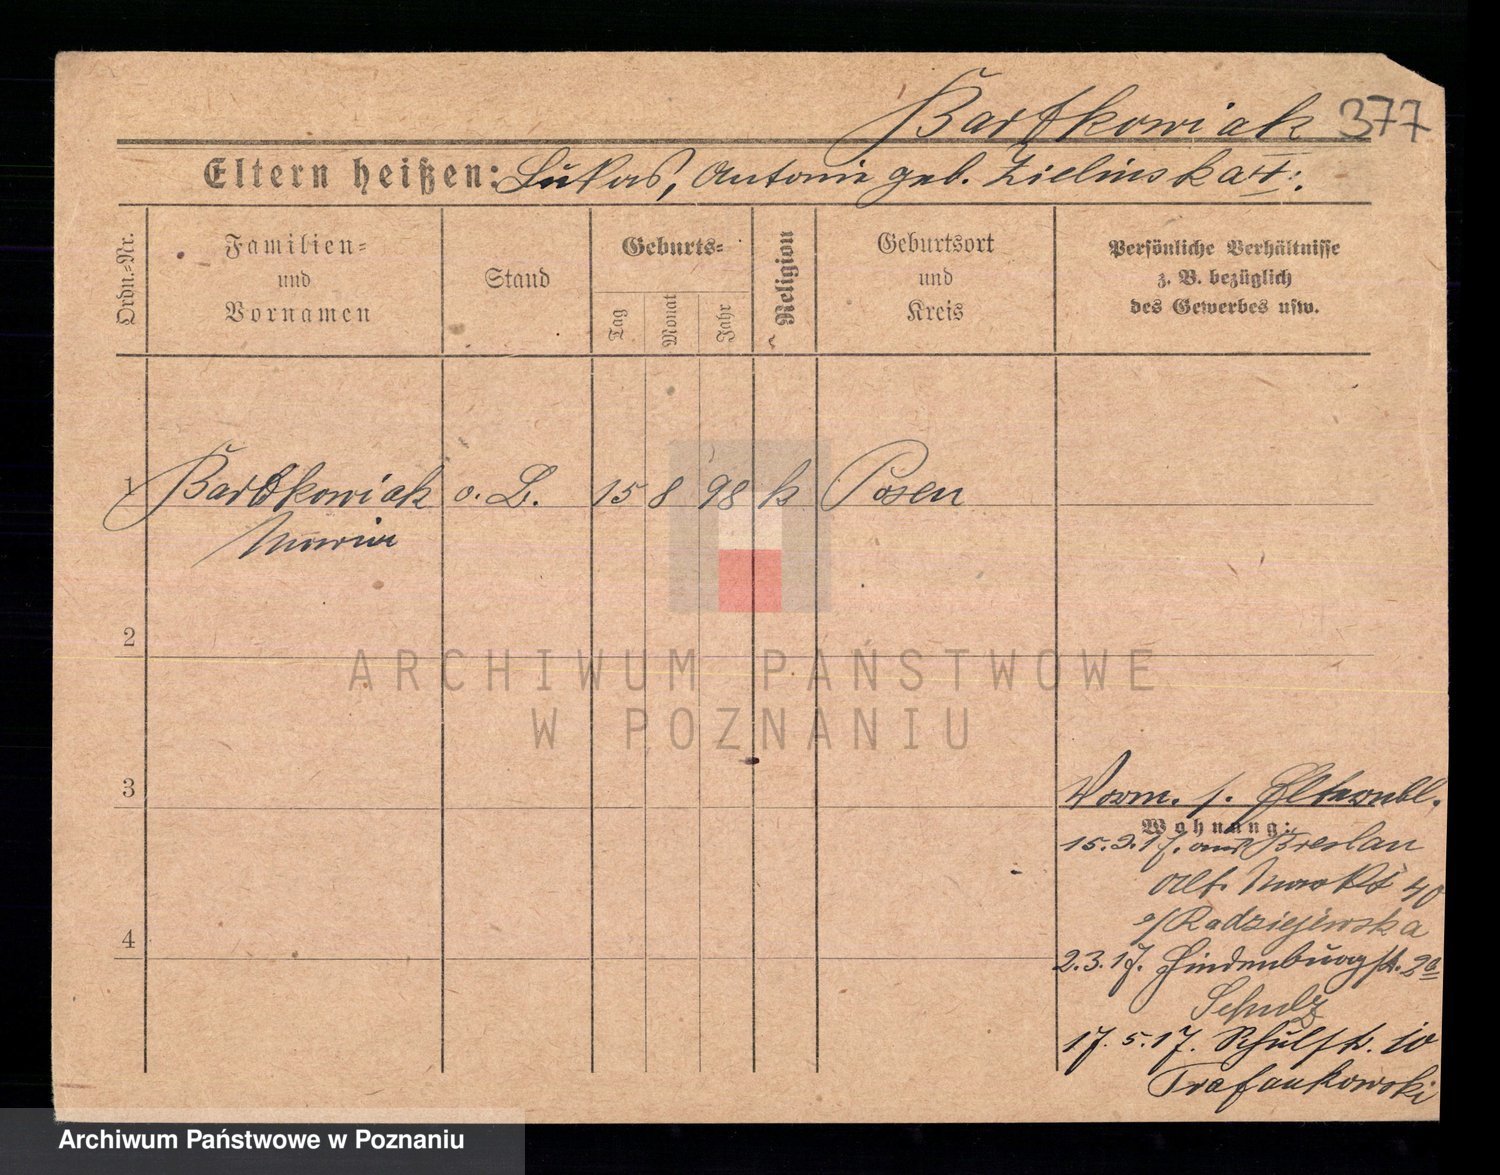 Bartkowiak 377
Eltern heißen: Lukas, Antonie geb. Zielinska
Ordn.=Nr.
Familien=
und
Vornamen
Stand
Geburts=
Tag
Monat
Jahr
Religion
Geburtsort
und
Kreis
Persönliche Verhältnisse
z. B. bezüglich
des Gewerbes usw.
1 Bartkowiak o. B. 15 8 98 k Posen
Maria
2
ARCHIWUM PAŃSTWOWE
W POZNANIU
3
Vorm. s. Elternbl.
Wohnung:
15.2.17. aus Breslau
Alt. Markt 40
b/Radziejewska
2.3.17. Hindenburgst.
Schulz
17.5.17. Schulstr. 10
4
Archiwum Państwowe w Poznaniu